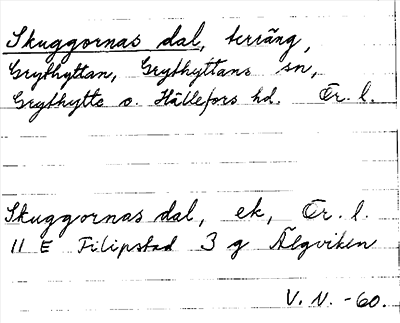 Skuggornas dal, terräng,
Grythyttan, Grythyttans sn,
Grythytte o. Hällefors hd. Ör. l.
Skuggornas dal, ek, Ör. l.
11 E Filipstad 3 g Älgviken
V. N. -60.